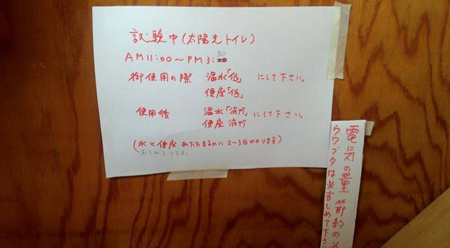 試験中(太陽光トイレ)
AM11:00〜PM3:30
御使用の際 温水「低」にして下さい。
便座「低」
使用後 温水「消灯」にして下さい。
便座 消灯
(水と便座あたたまるのに2〜3分かかります)
電気の量節約の
ウワブタは必ずしめて下さ